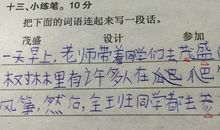 十三、小练笔。10分
把下面的词语连起来写一段话。
茂盛 设计 参加
一天早上,老师带着同学们去茂盛
树林里有许多人在
风筝,然后,全班同学都去参